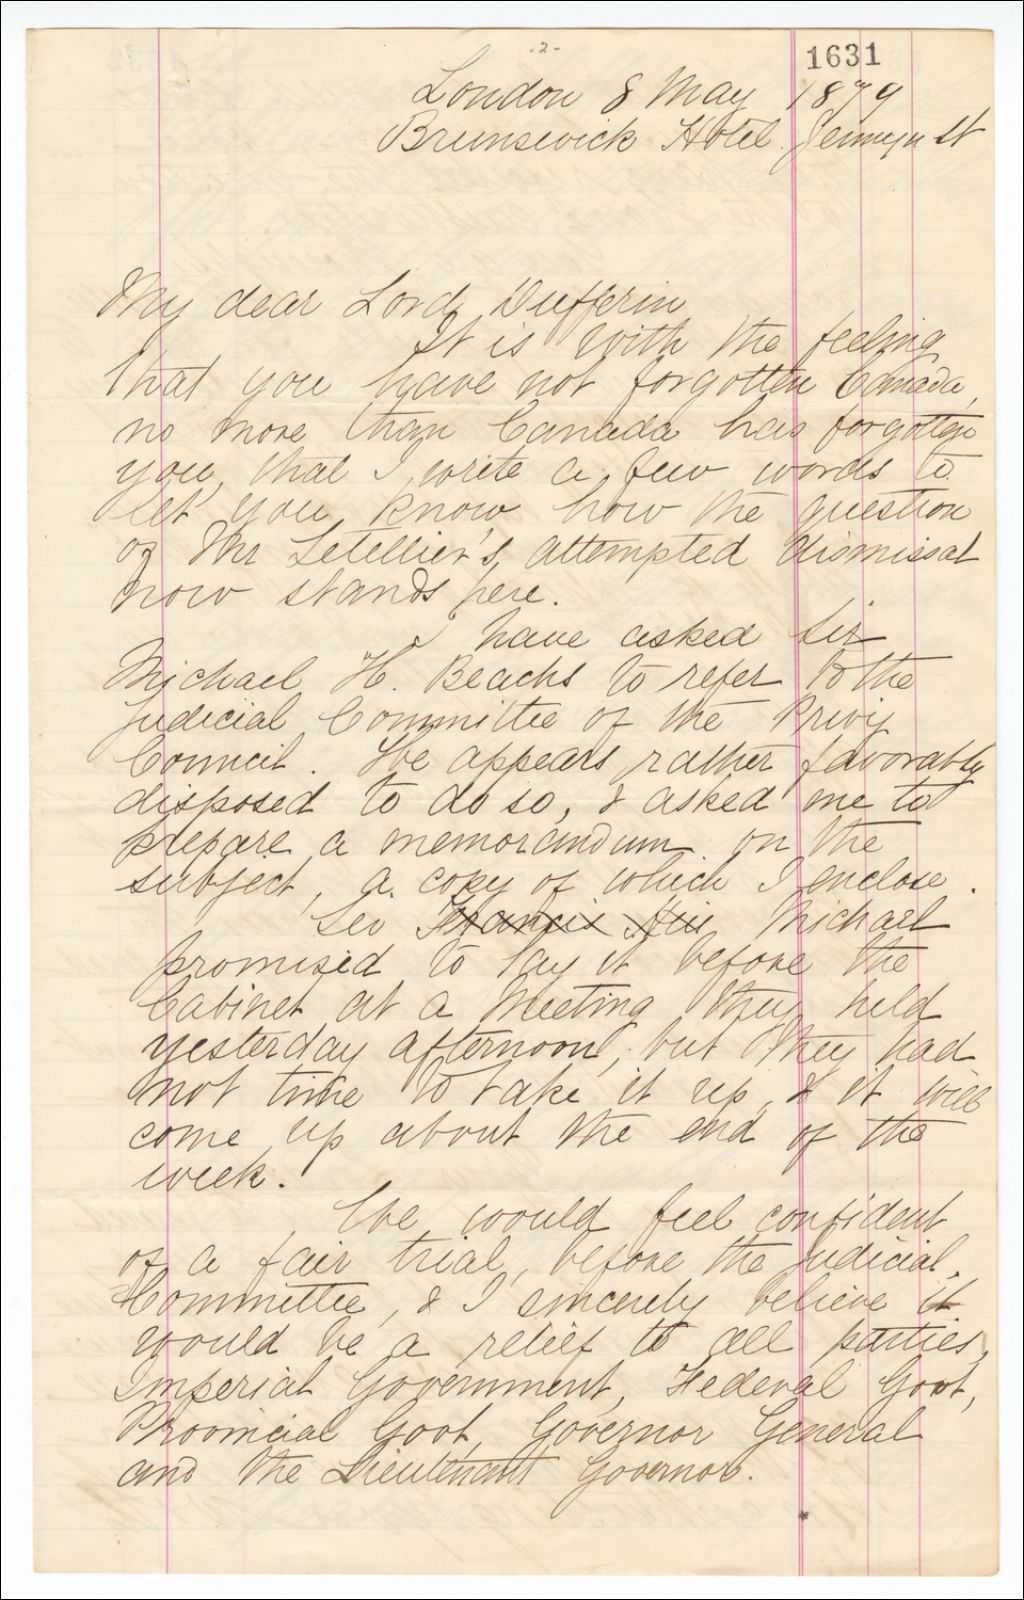 -2-
1631
London 8 May 1879
Brunswick Hotel. Jermyn St
My dear Lord Dufferin
It is with the feeling
that you have not forgotten Canada,
no more than Canada has forgotten
you, that I write a few words to
let you know how the question
of Mr Letellier's attempted dismissal
now stands here.
I have asked Sir
Michael H. Beachs to refer to the
Judicial Committee of the Privy
Council. He appears rather favorably
disposed to do so, & asked me to
prepare a memorandum on the
subject, a copy of which I enclose.
Sir Francis His Michael
promised to lay it before the
Cabinet at a Meeting they held
yesterday afternoon, but they had
not time to take it up, & it will
come up about the end of the
week.
We would feel confident
of a fair trial, before the Judicial
Committee, & I sincerely believe it
would be a relief to all parties,
Imperial Government, Federal Govt,
Provincial Govt, Governor General
and the Lieutenant Governor.